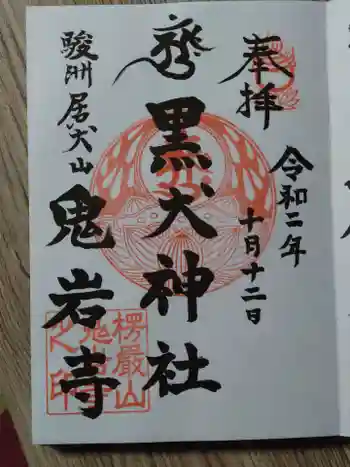 奉拝
令和二年
十月十二日
黒犬神社
駿洲居犬山
鬼岩寺
楞嚴山
鬼岩寺
之印